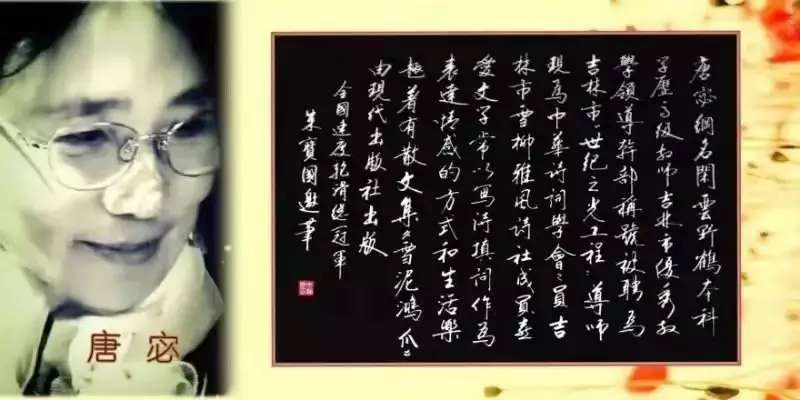 唐宓網名閑雲野鶴本科
学歷高级教师吉林市優秀教
學領導幹部稱號被聘為
吉林市“世纪之光工程”導师
現為中華诗词學會會員吉
林市雪柳雅風诗社成員喜
愛文学常以寫诗填词作為
表達情感的方式和生活樂
趣著有散文集《雪泥鴻爪》
由現代出版社出版
全國速度滑冠軍
朱寶國筆
唐宓